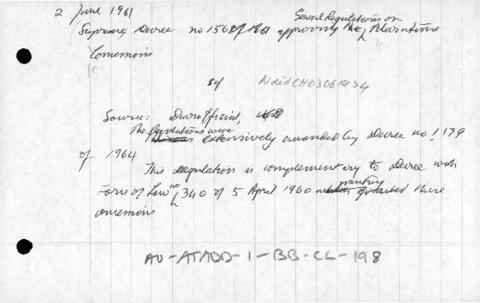 2 June 1961
General Regulations on
Supreme Decree no 156 of 1961 approving the Maritime
Concessions
Source: Diario Oficial,
The Regulations were
extensively amended by Decree no. 1179
of 1964
This regulation is complementary to Decree with
Force of Law no 340 of 5 April 1960 granting
concessions
AU-ATADD-1-BB-CL-198